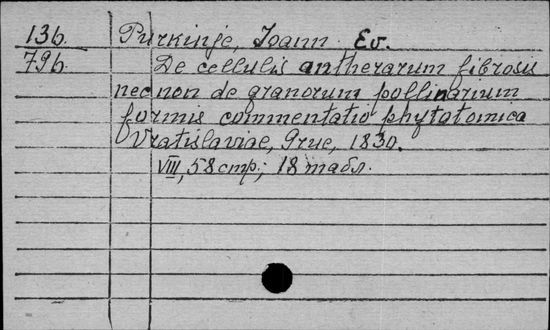 136. Purkinje, Joann Ev.
796. De cellulis antherarum fibrosis
nec non de granorum pollinarium
formis commentatio phytotomica
Vratislaviae, Grue, 1830.
VIII, 58 стр.; 18 табл.